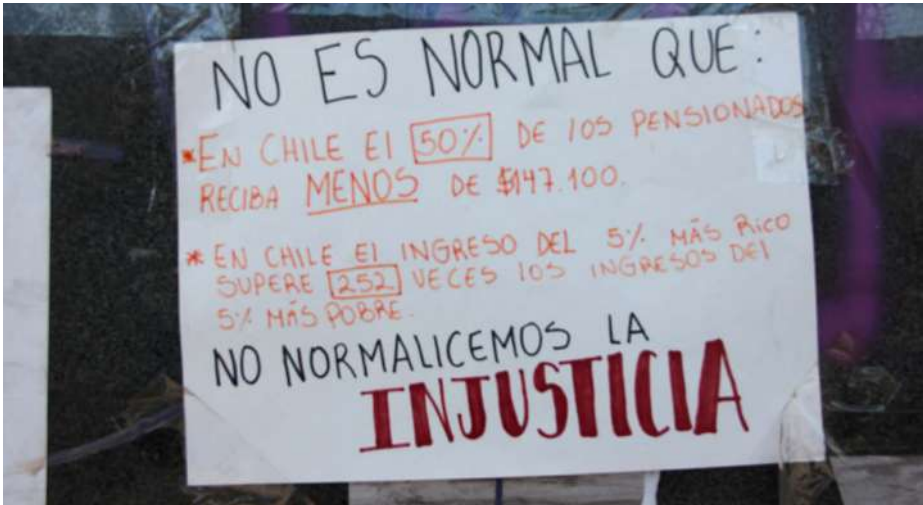 NO ES NORMAL QUE:
*EN CHILE El 50% DE lOS PENSIONADOS
RECIBA MENOS DE $147.100.
* EN CHILE El INGRESO DEL 5% MÁS RICO
SUPERE 252 VECES lOS INGRESOS DEl
5% MÁS POBRE.
NO NORMALICEMOS LA
INJUSTICIA